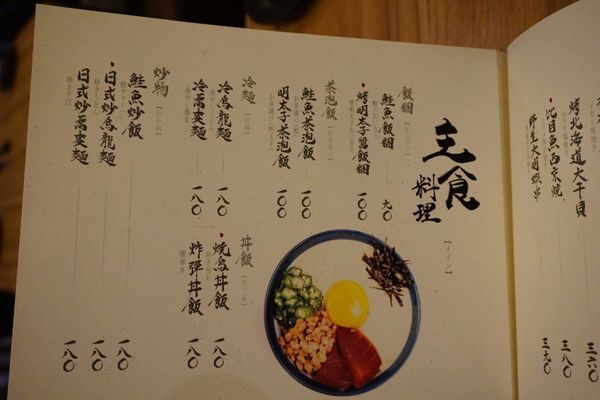 三六〇
烤北海道大干貝 三八〇
比目魚西京燒 三九〇
野生大明蝦串
主食
料理
【メイン】
飯糰
鮭魚飯糰 九〇
烤明太子醬飯糰 一〇〇
茶泡飯
鮭魚茶泡飯 一〇〇
明太子茶泡飯 一〇〇
冷麵
冷烏龍麵 一八〇
冷蕎麥麵 一八〇
丼飯
燒鳥丼飯 一八〇
炸彈丼飯 一八〇
炒物
鮭魚炒飯 一八〇
日式炒烏龍麵 一八〇
日式炒蕎麥麵 一八〇